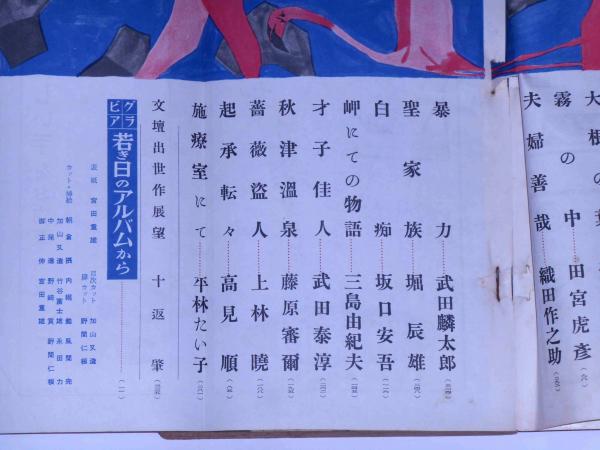 大根の葉
霧の中……田宮虎彦
夫婦善哉……織田作之助
暴力……武田麟太郎
聖家族……堀辰雄
白痴……坂口安吾
岬にての物語……三島由紀夫
才子佳人……武田泰淳
秋津温泉……藤原審爾
薔薇盗人……上林暁
起承転々……高見順
施療室にて……平林たい子
文壇出世作展望 十返肇
グラビア 若き日のアルバムから……(一)
表紙 宮田重雄
目次カット 加山又造
扉カット 野間仁根
カット・挿絵 朝倉摂
加山又造
中尾進
御正伸